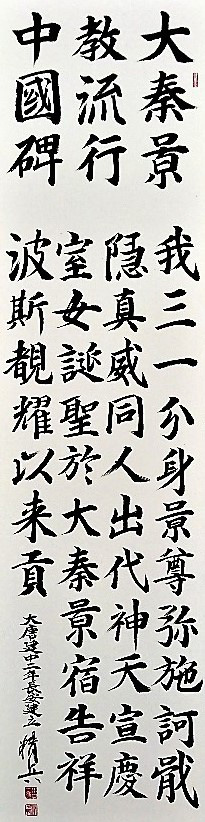 大秦景
教流行
中國碑
我三一分身景尊弥施訶戢
隱真威同人出代神天宣慶
室女誕聖於大秦景宿告祥
波斯覩耀以来貢
大唐建中二年長安建立